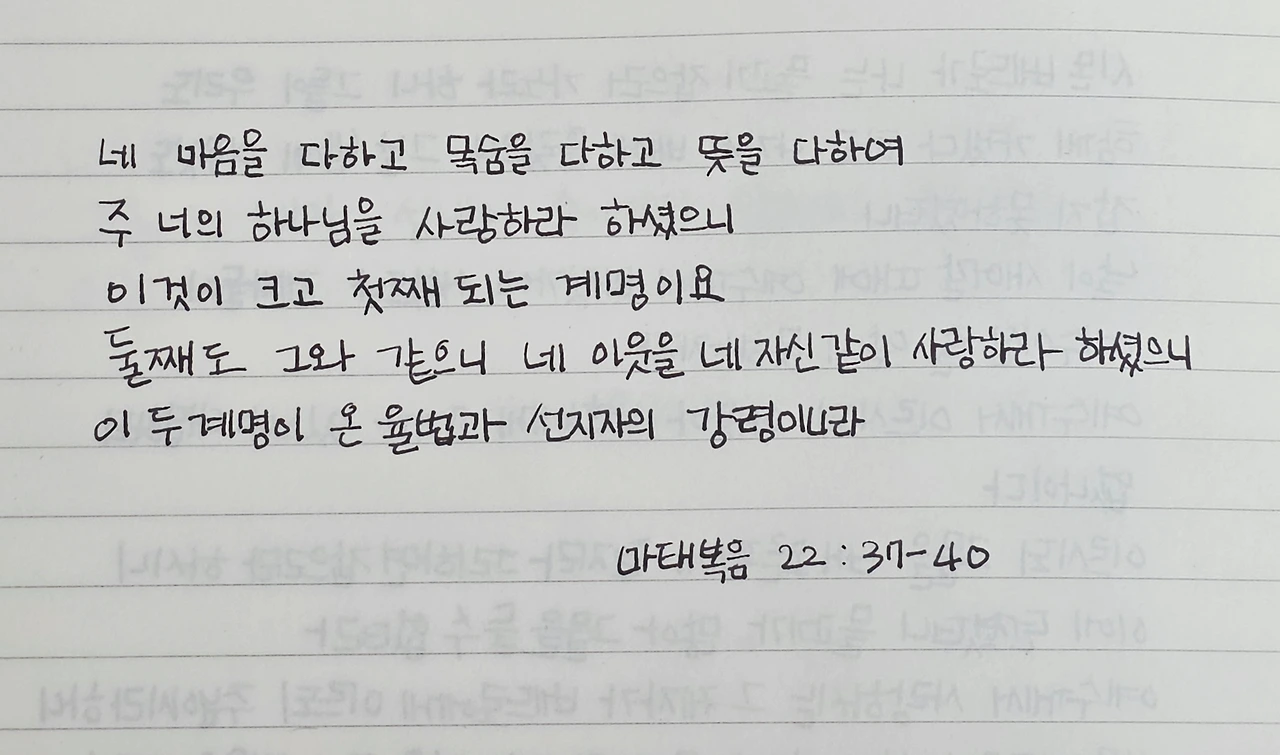 네 마음을 다하고 목숨을 다하고 뜻을 다하여
주 너의 하나님을 사랑하라 하셨으니
이것이 크고 첫째 되는 계명이요
둘째도 그와 같으니 네 이웃을 네 자신 같이 사랑하라 하셨으니
이 두 계명이 온 율법과 선지자의 강령이니라
마태복음 22 : 37-40